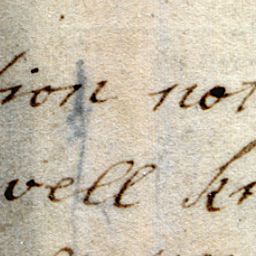 tion not
well kn